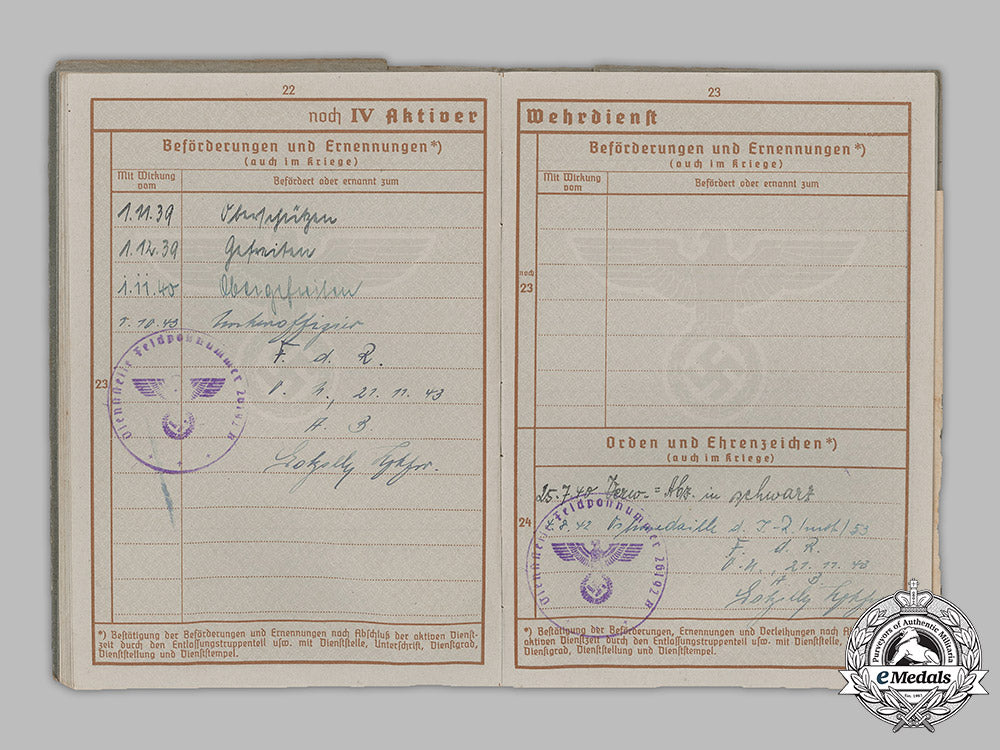 22
noch IV Aktiver
Beförderungen und Ernennungen*)
(auch im Kriege)
Mit Wirkung vom
Befördert oder ernannt zum
1.11.39 Oberschützen
1.12.39 Gefreiten
1.11.40 Obergefreiten
1.10.43 Unteroffizier
F. d. R.
23
O. U., 21.11.43
A. B.
Dienststelle Feldpostnummer 26192 B
*) Bestätigung der Beförderungen und Ernennungen nach Abschluß der aktiven Dienst-
zeit durch den Entlassungstruppenteil usw. mit Dienststelle, Unterschrift, Dienstgrad,
Dienststellung und Dienststempel.
23
Wehrdienst
Beförderungen und Ernennungen*)
(auch im Kriege)
Mit Wirkung vom
Befördert oder ernannt zum
noch
23
Orden und Ehrenzeichen*)
(auch im Kriege)
25.7.40 Verw.=Abz. in schwarz
24
1.8.42 Ostmedaille d. I-R (mot) 53
F. d. R.
O. U., 21.11.43
A. B.
Dienststelle Feldpostnummer 26192 B
*) Bestätigung der Beförderungen, Ernennungen und Verleihungen nach
aktiven Dienstzeit durch den Entlassungstruppenteil usw. mit Dienststelle,
Dienstgrad, Dienststellung und Dienststempel.
Purveyors of Authentic Militaria
eMedals